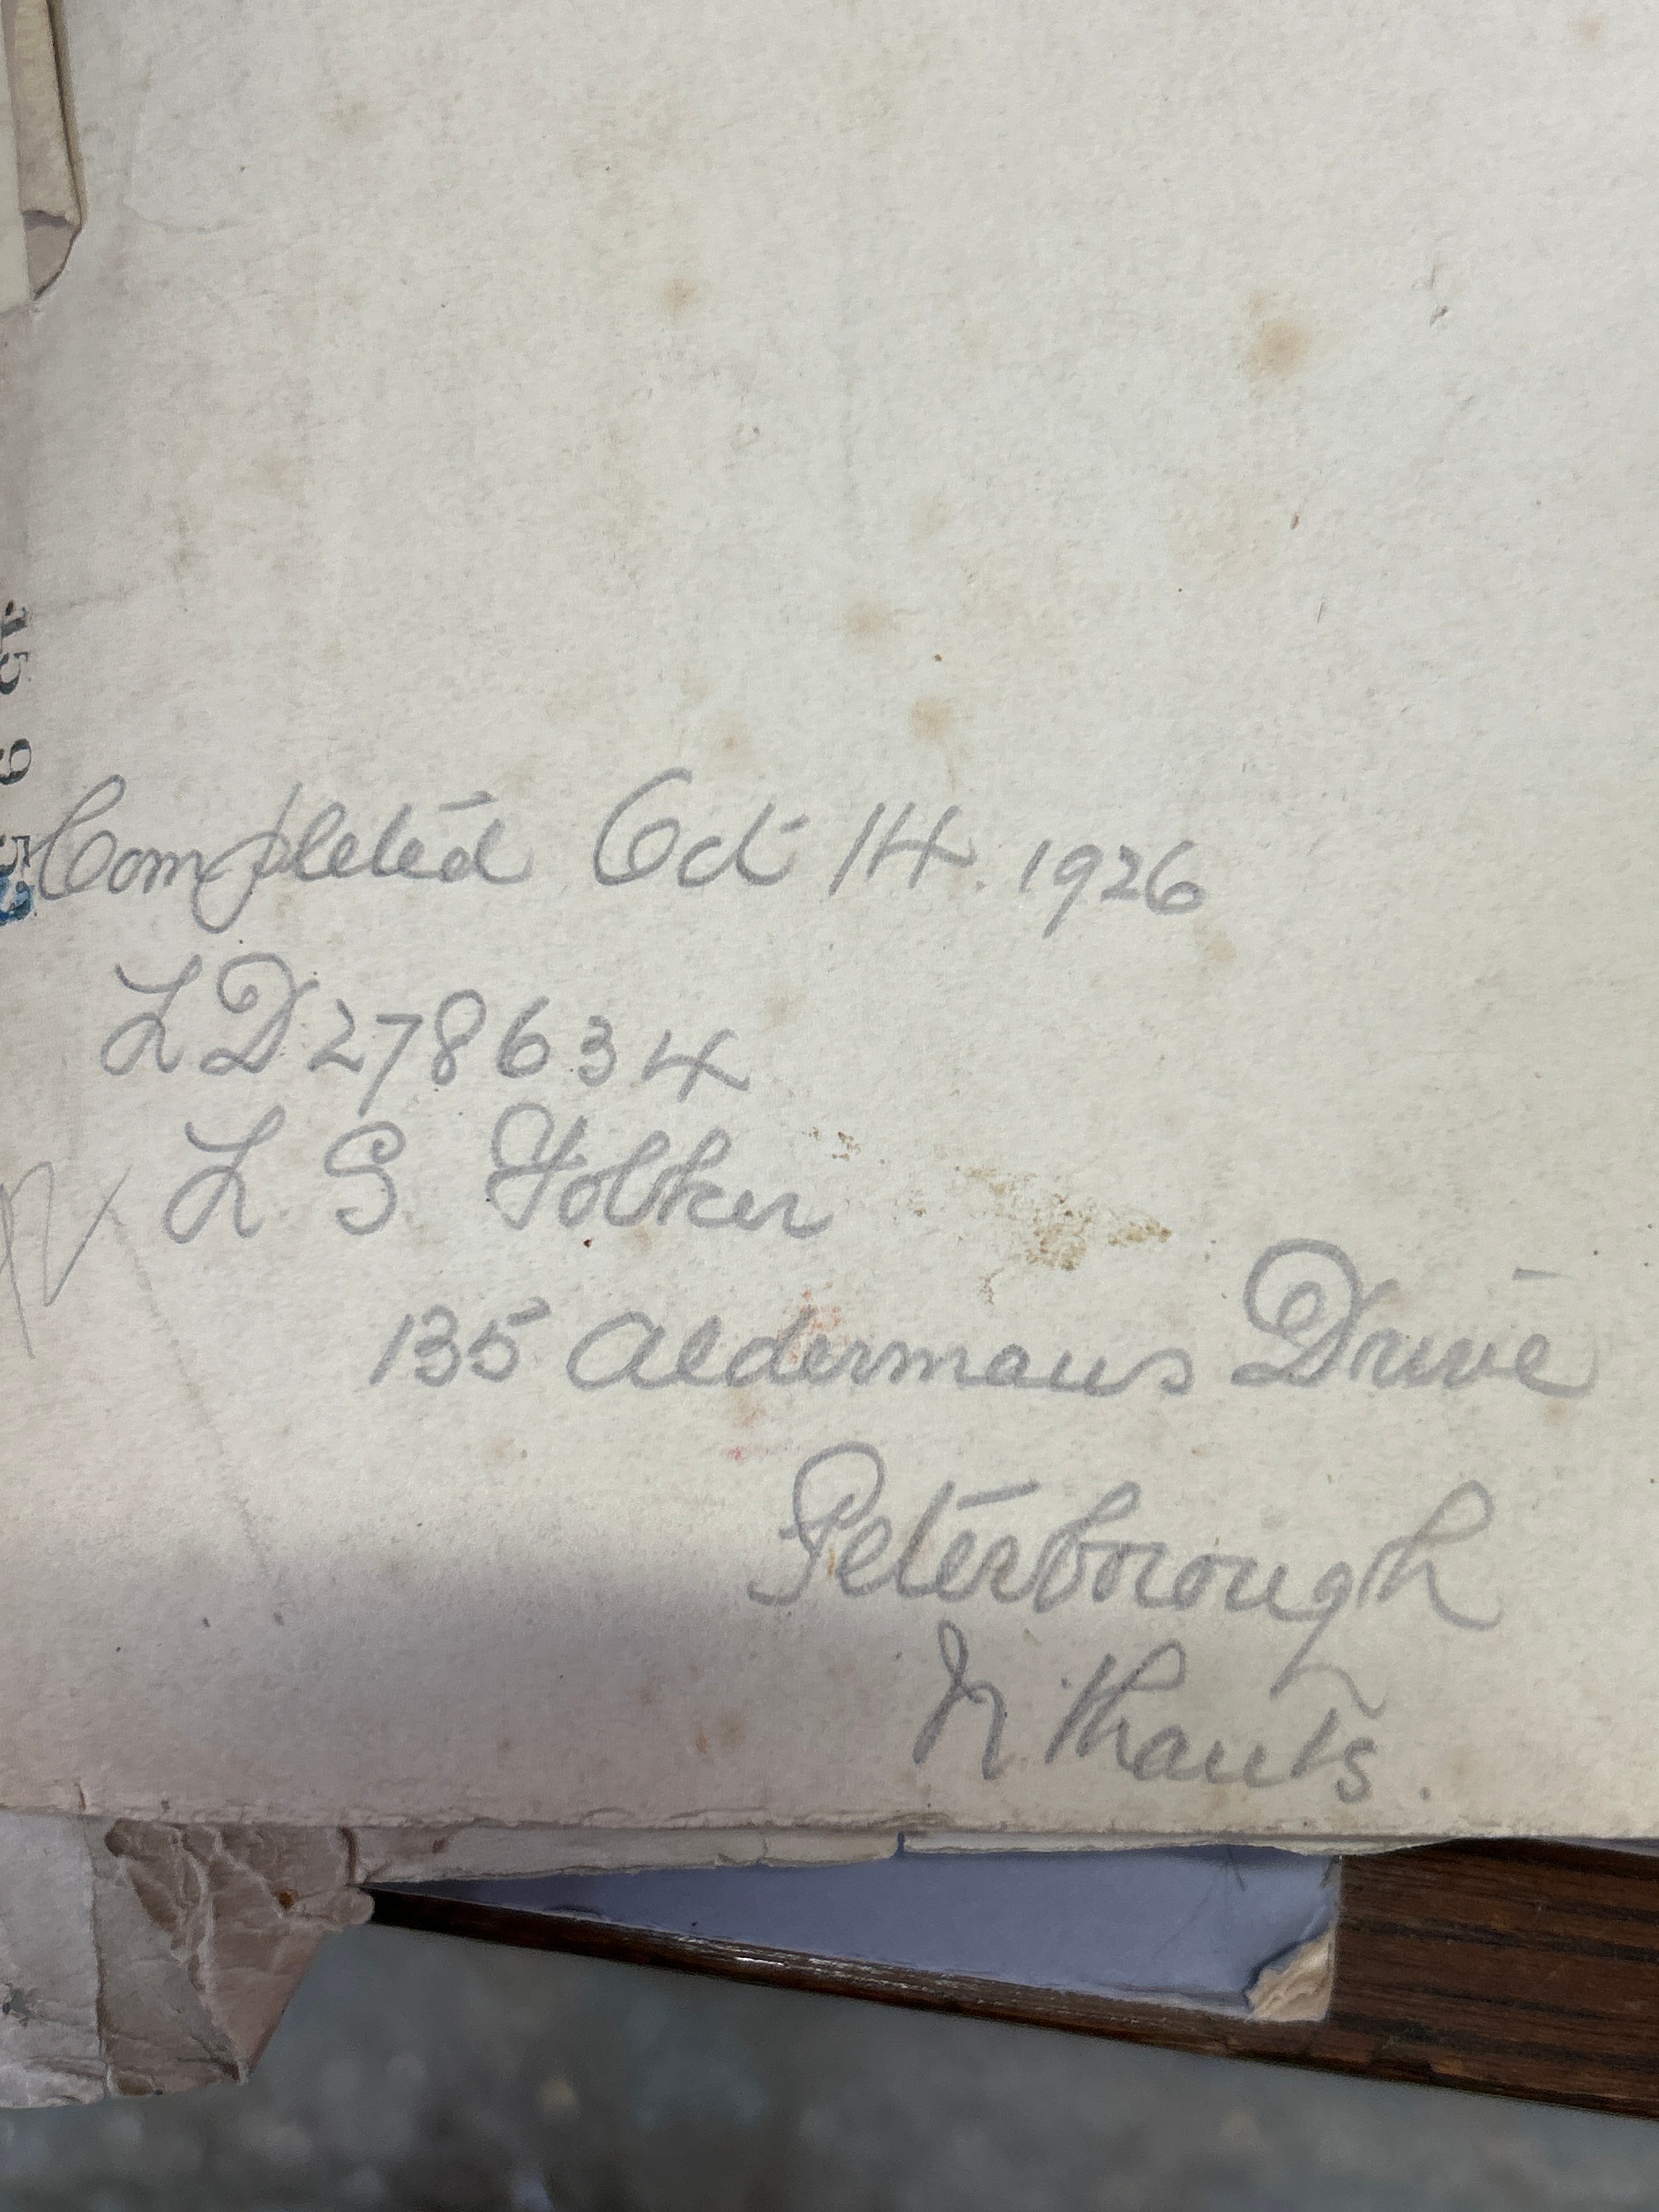 Completed Oct 14. 1926
LD278634
L. G. Folker
135 Aldermans Drive
Peterborough
N. Thants.